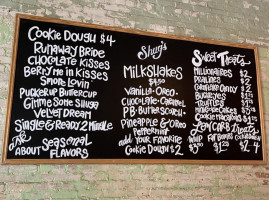 Cookie Dough $4
Runaway Bride
Chocolate Kisses
Berry me in Kisses
Smore Lovin'
Pucker up Buttercup
Gimme Some Shuga
Velvet Dream
Single & Ready 2 Mingle
Ask ABOUT Seasonal FLAVORS
Shug's
Milkshakes
Vanilla-Oreo-
Chocolate-Caramel
PB-Butterscotch-
Pineapple & Oreo
Peppermint
Add Your Favorite
Cookie Dough $2
Sweet Treats
Millionaires $2
Pralines $2
Buckeyes
Truffles
Cookie
Low Carb Treats
Whip Fat Bombs
$3 $1.25 $2-4